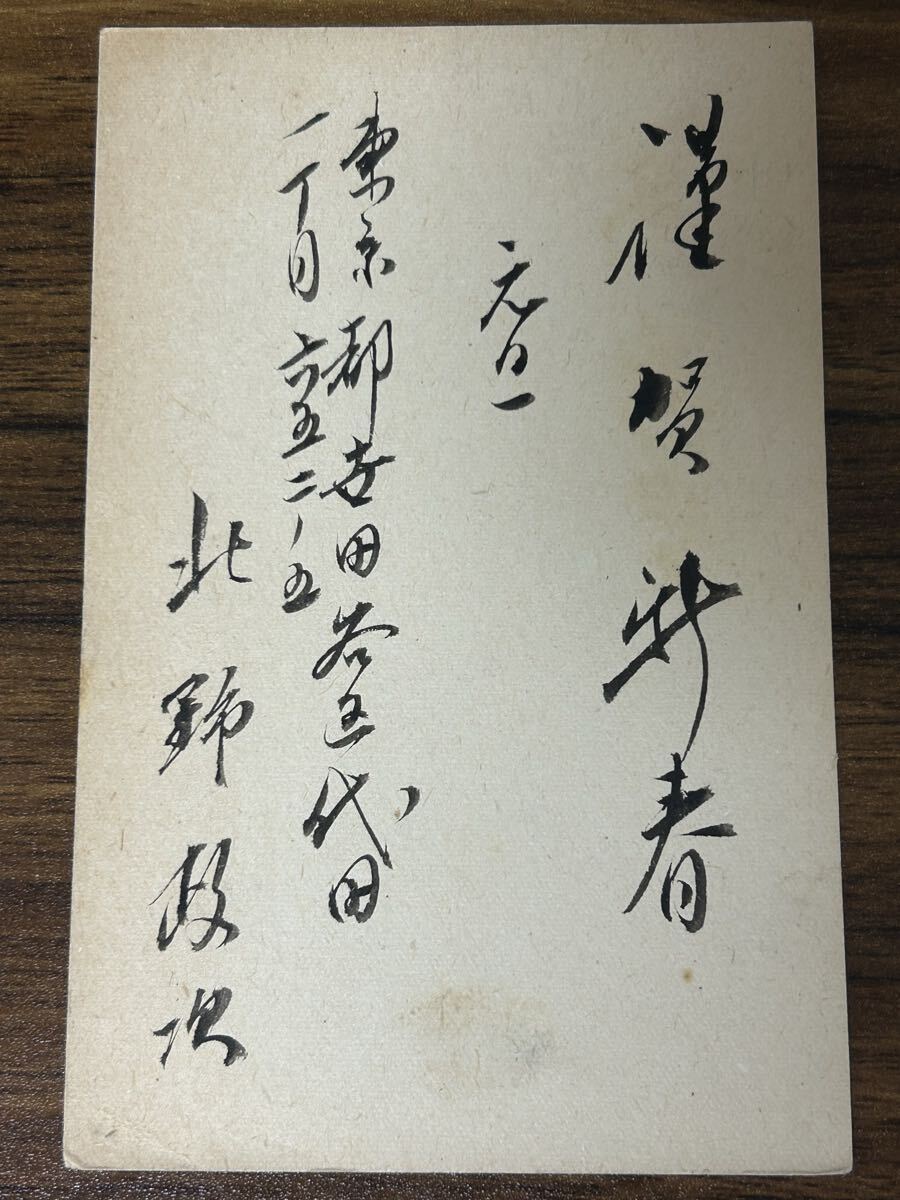 謹賀新春
元旦
東京都世田谷区代田
一丁目六五二ノ五
北野政次